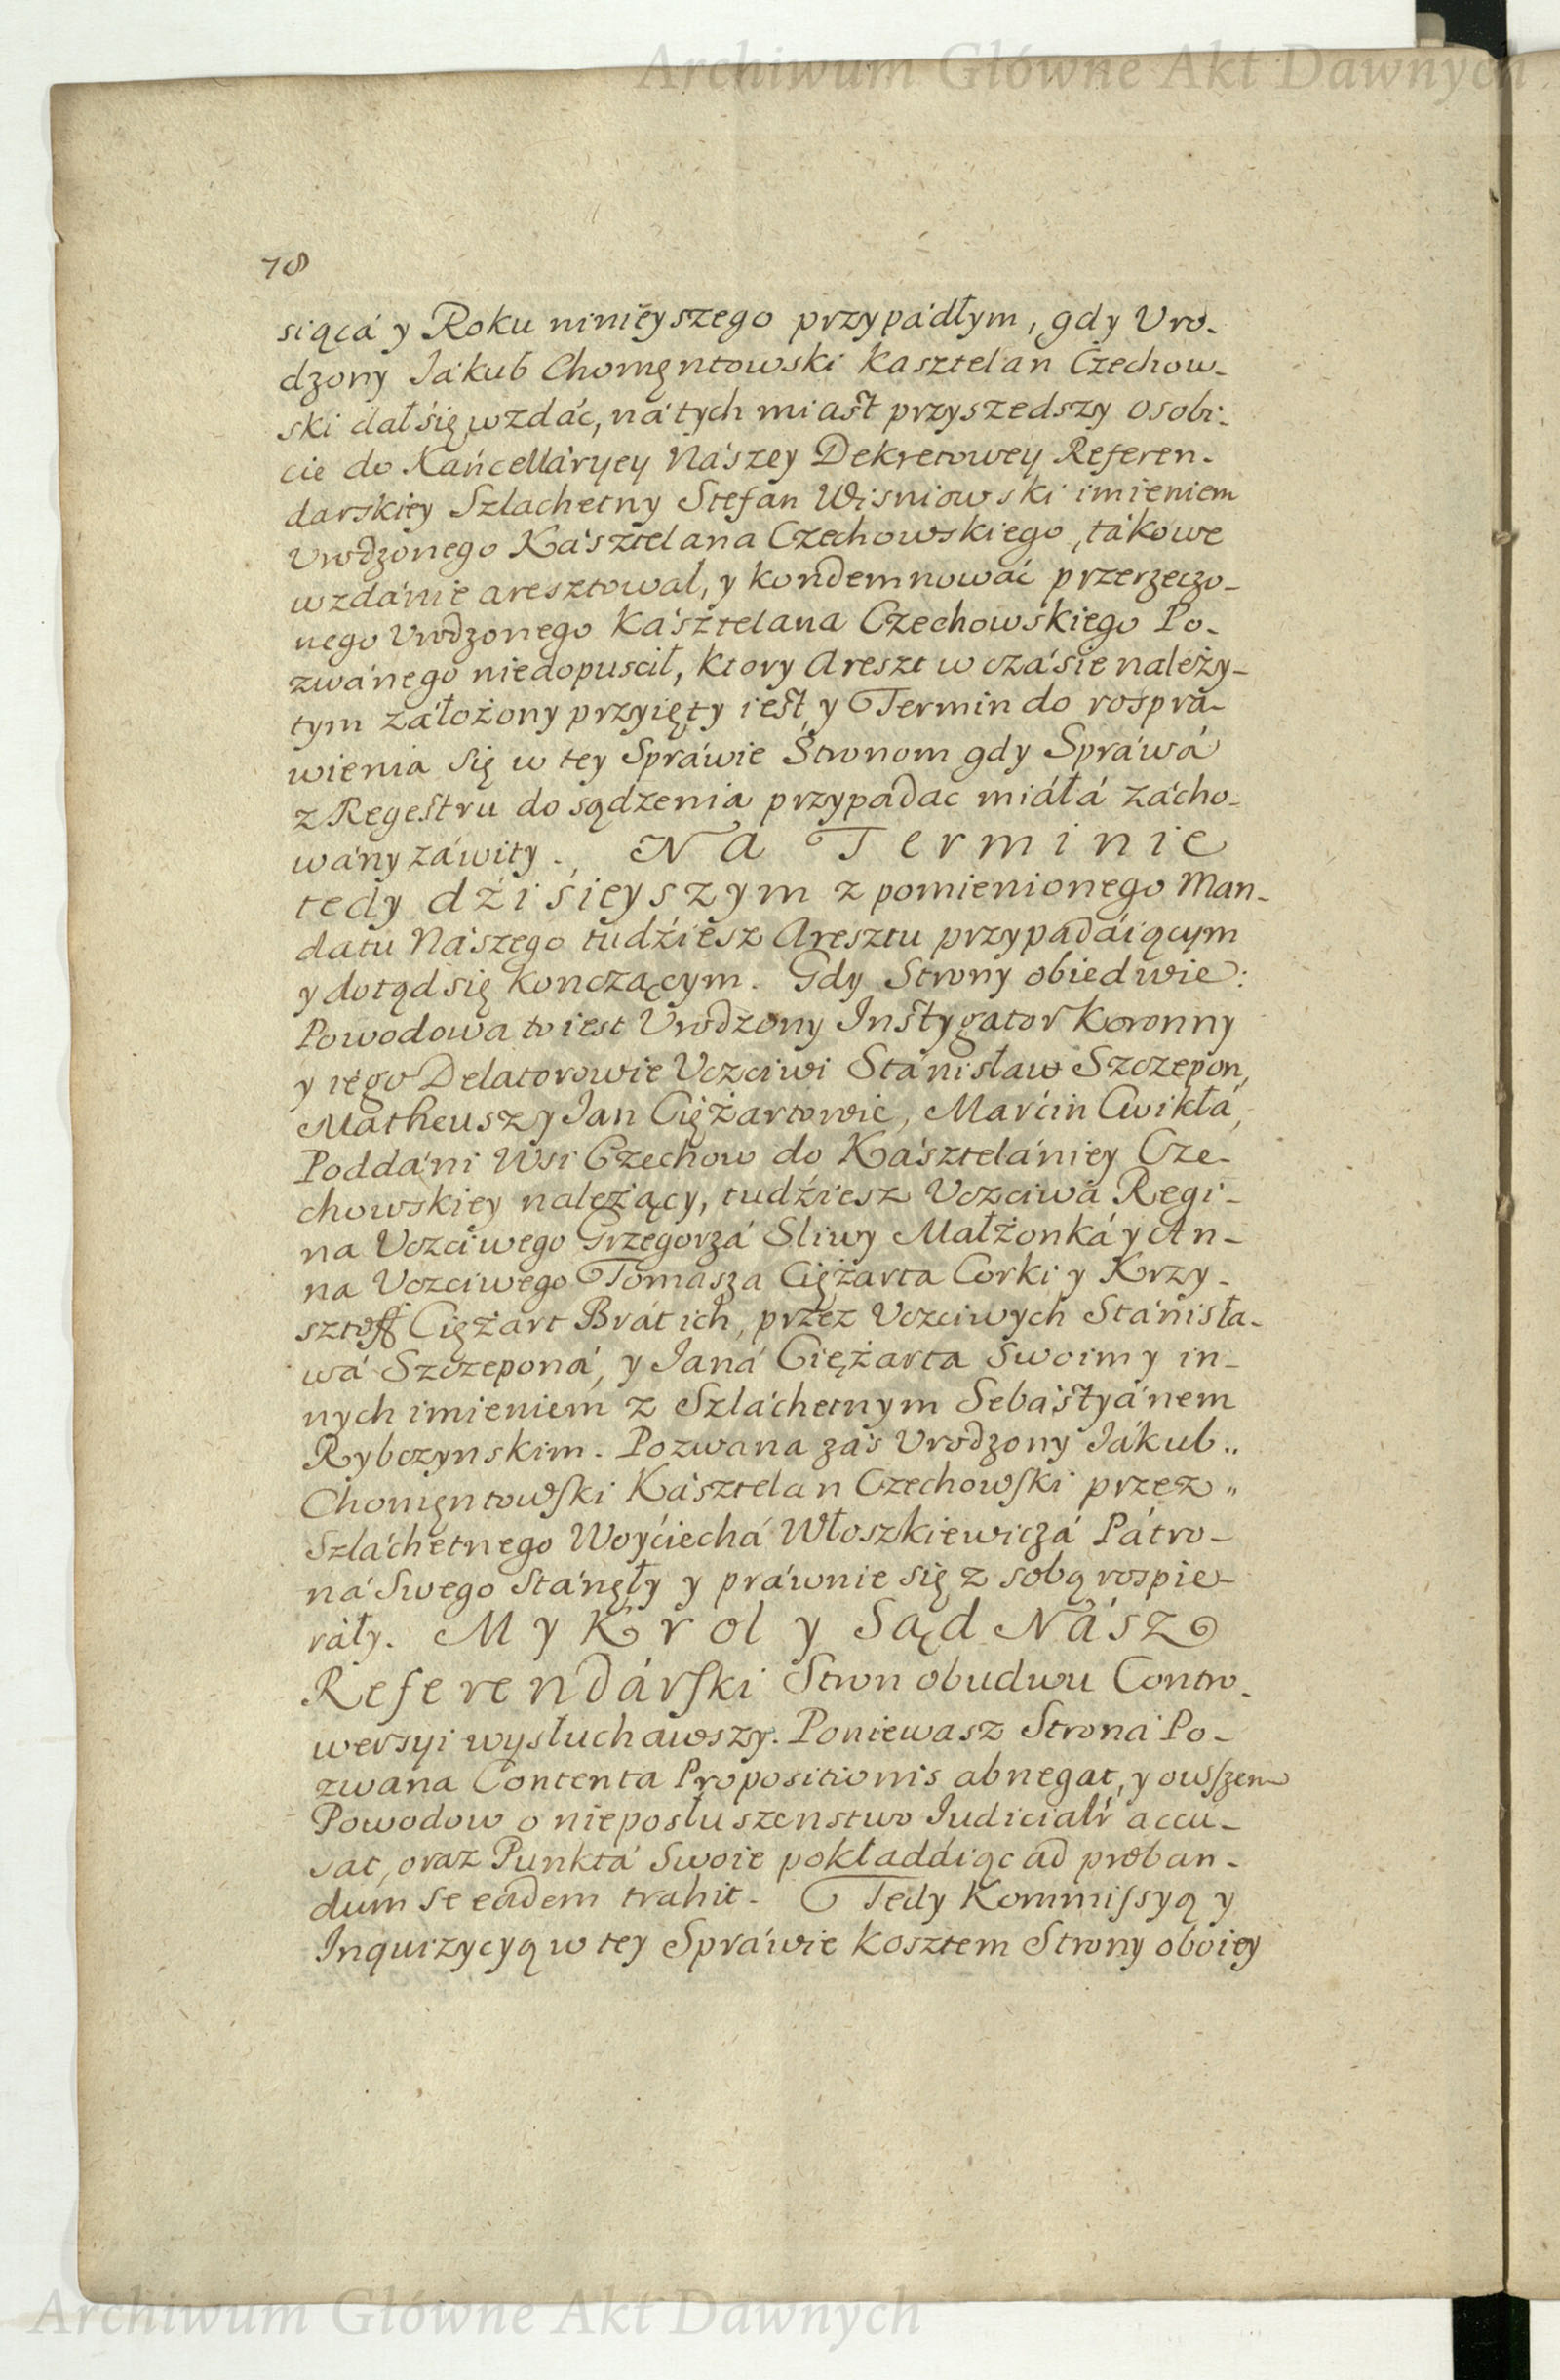 Archiwum Główne Akt Dawnych
78
siącá y Roku ninieyszego przypádłym, gdy Uro-
dzony Jákub Chomęntowski Kasztelan Czechow-
ski dał się wzdáć, nátych miast przyszedszy osobi-
cie do Káncelláryey Nászey Dekretowey Referen-
darskiey Szlachetny Stefan Wisniowski imieniem
Urodzonego Kásztelana Czechowskiego, tákowe
wzdánie aresztował, y kondemnowáć przerzeczo-
nego Urodzonego Kásztelana Czechowskiego Po-
zwánego niedopuscił, ktory Areszt w czásie należy-
tym záłożony przyięty iest y Termin do rospra-
wienia się w tey Spráwie Stronom gdy Spráwá
z Regestru do sądzenia przypadac miáłá zácho-
wány záwity. Na Terminie
tedy dźisieyszym z pomienionego Man-
datu Nászego tudźiesz Aresztu przypadáiącym
y dotąd się konczącym. Gdy Strony obiedwie:
Powodowa to iest Urodzony Instygator Koronny
y iego Delatorowie Uczciwi Stánisław Szczepon,
Matheusz y Jan Ciężartowie, Marcin Cwikłá,
Poddáni Wsi Czechow do Kásztelániey Cze-
chowskiey należący, tudźiesz Uczciwa Regi-
na Uczciwego Grzegorzá Sliwy Małżonká y An-
na Uczciwego Tomasza Ciężarta Corki y Krzy-
sztoff Ciężart Brát ich, przez Uczciwych Stánisła-
wá Szczeponá, y Janá Ciężarta swoim y in-
nych imieniem z Szláchetnym Sebástyánem
Rybczynskim. Pozwana zás Urodzony Jákub
Chomęntowski Kásztelan Czechowski przez
Szláchetnego Woyćiechá Włoszkiewiczá Pátro-
ná Swego Stánęły y práwnie się z sobą rospie-
ráły. My Krol y Sąd Nász
Referendárski Stron obudwu Contro-
wersyi wysłuchawszy. Poniewasz Strona Po-
zwana Contenta Propositionis abnegat, y owszem
Powodow o nieposłuszenstwo Judicialr accu-
sat, oraz Punktá Swoie pokładáiąc ad proban-
dum se eadem trahit. Tedy Kommissyą y
Inquizycyą w tey Spráwie kosztem Strony oboiey
Archiwum Główne Akt Dawnych